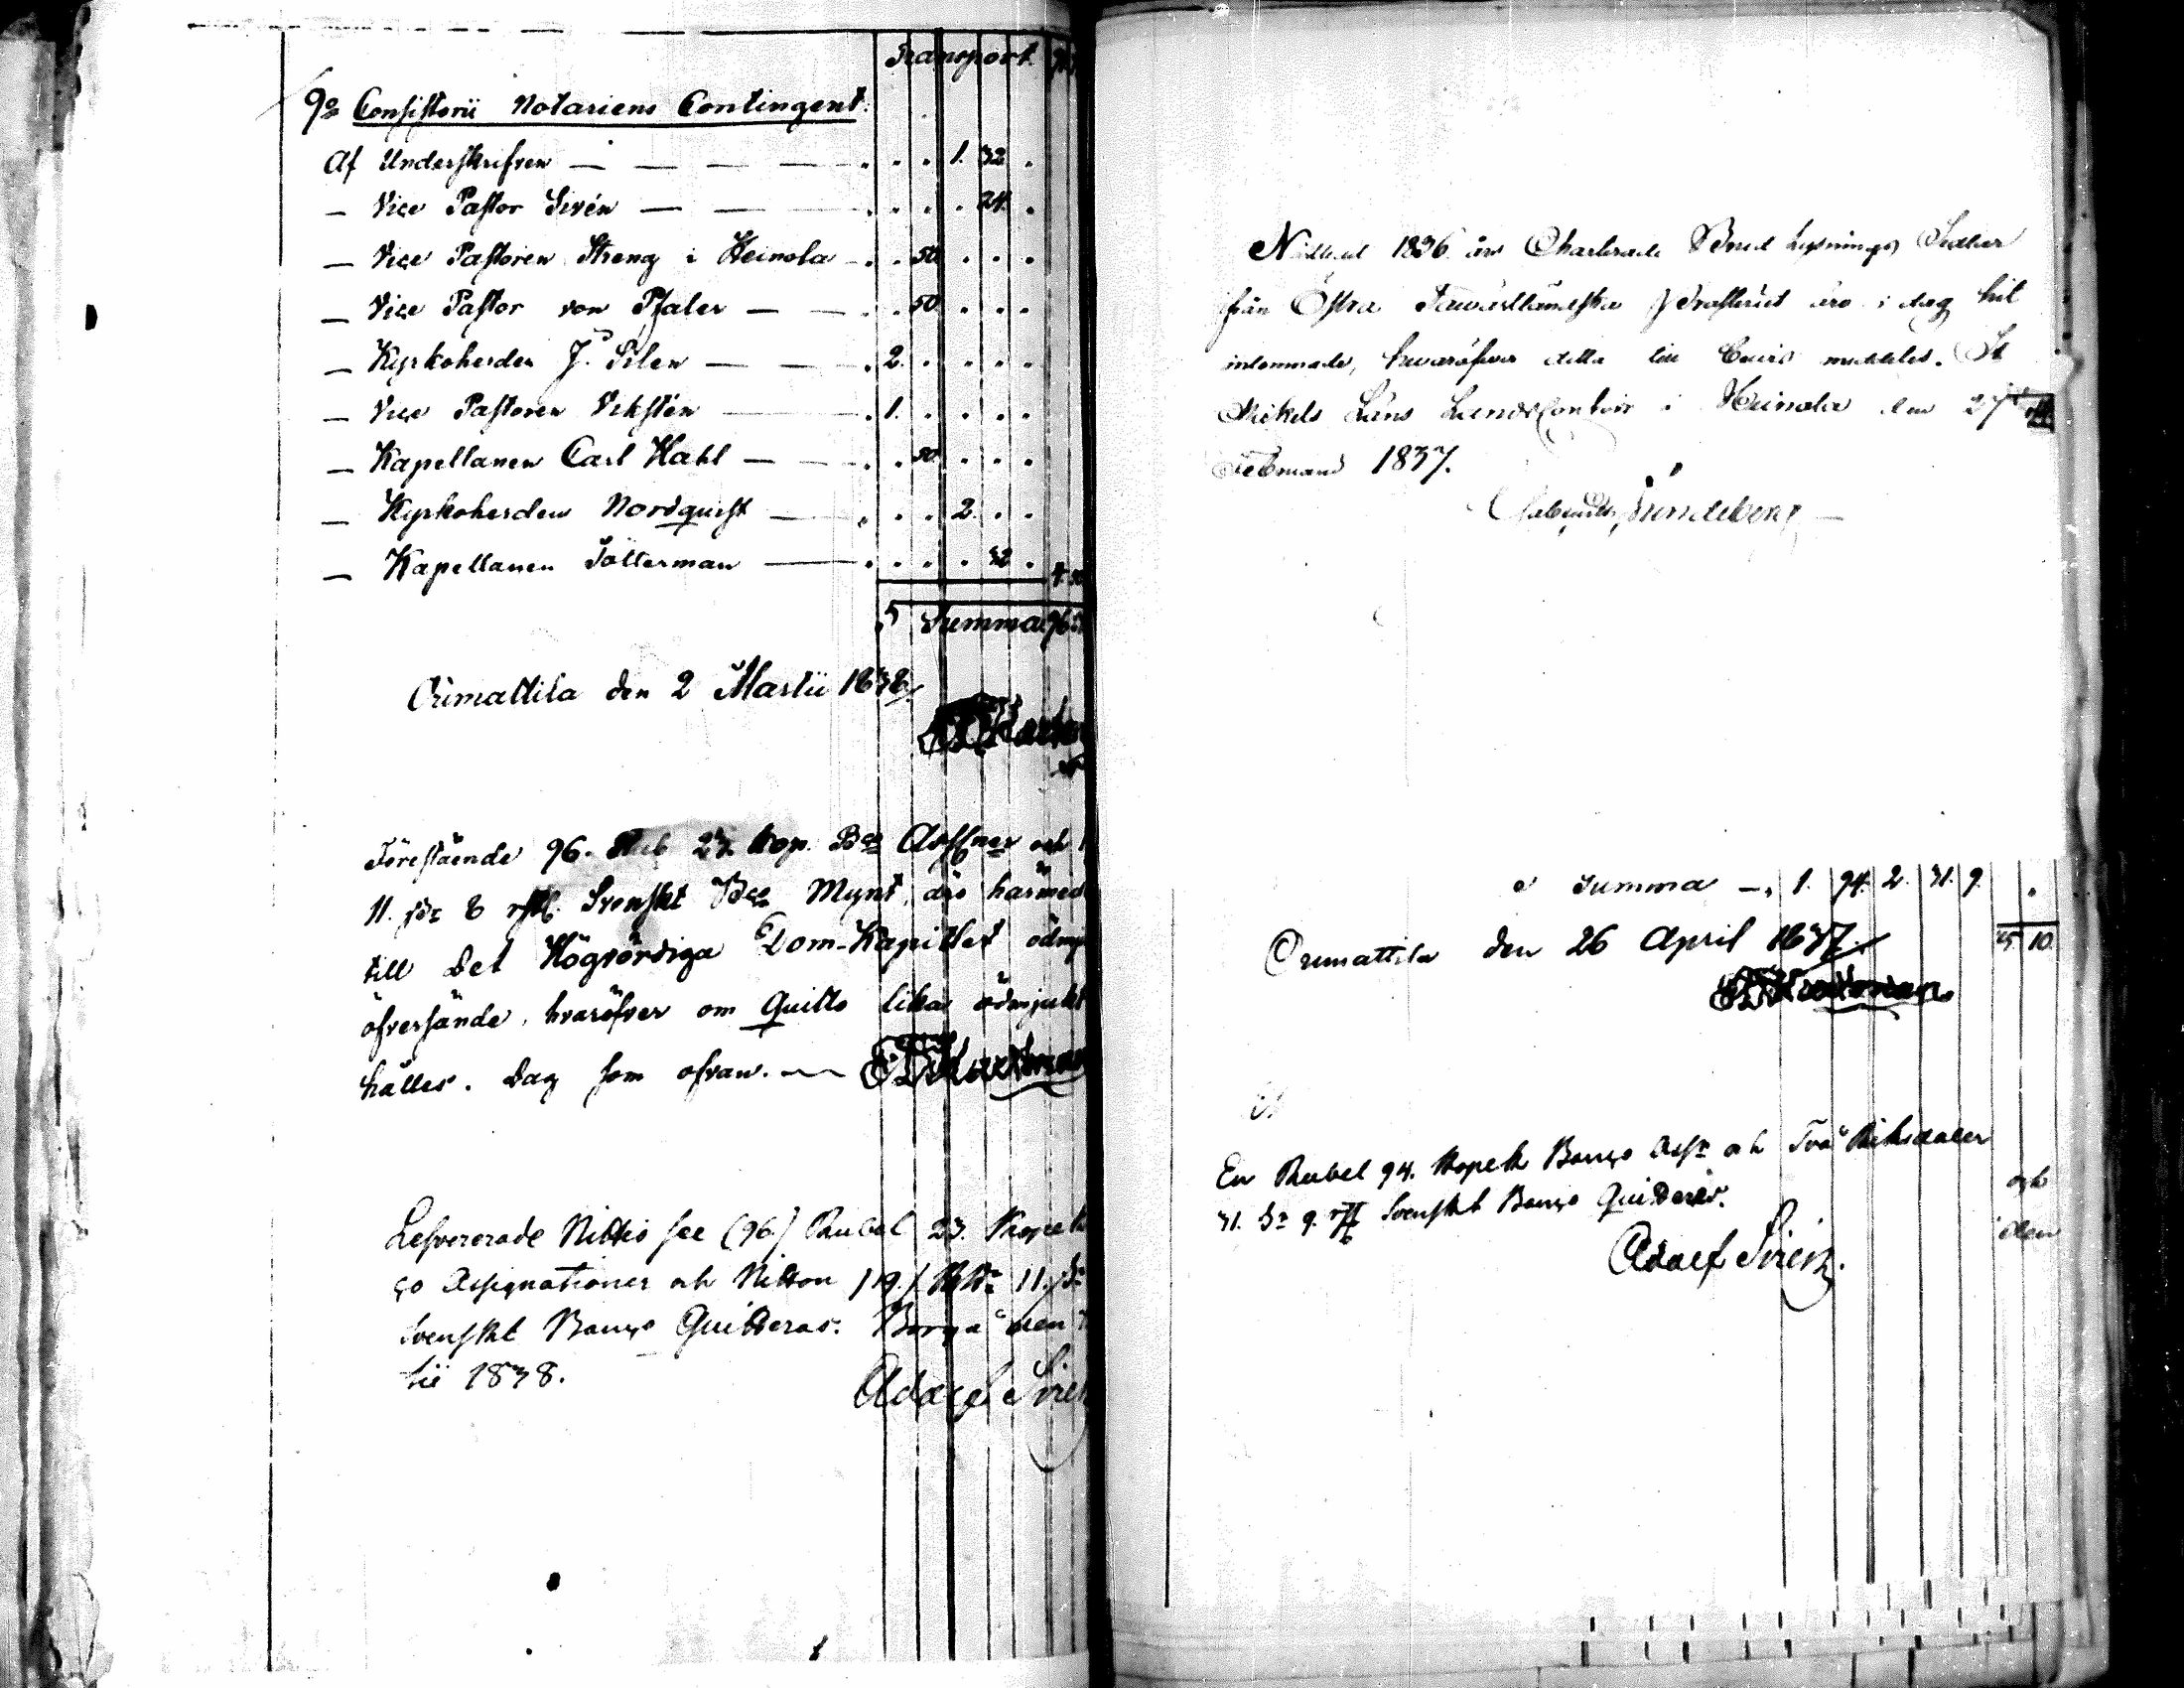 Transport.
9o Consistorii Notariens Contingent.
Af Underskrifven — . . . 1. 32 .
— Vice Pastor Sirén — . . . . 24. .
— Vice Pastoren Streng i Heinola — . . 50 . . .
— Vice Pastor von Pfaler — . . 50 . . . .
— Kyrkoherden J. Silen — . 2. . . . . .
— Vice Pastoren Vikstén — . 1. . . . . .
— Kapellanen Carl Hahl — . . 50 . . . .
— Kyrkoherden Nordquist — . . . 2. . .
— Kapellanen Tolterman — . . . . 32 .
Summa 96
Orimattila den 2 Martii 1838.
Förestående 96. Rub 23. Kop. Bco Assner och
11. s 8 rst. Svenskt Bco Mynt, äro härmed
till Det Högvördiga Dom-Kapitlet
öfversände, hvaröfver om Quitto lika ödmjukt
hålles. Dag som ofvan.
Lefvererade Nittio sex (96) Rubel 23. Kopek
co Assignationer och Nitton (19.) R 11. s
Svenskt Banco Quitteras. Borgå den
tii 1838.
Adolf Sirén
1836 års Charterade Lysnings Sedlar
från Östra Tawastländska Prosteriet äro i dag hit
inlemnade, hwaröfwer detta till bewis meddelas. St
Mickels Läns Landscontoir i Heinola den 27
Februarii 1837.
Summa — 1. 94. 2. 31. 9.
Orimattila den 26 April 1837.
En Rubel 94. Kopek Banco Assr och Två Riksdaler
31. s 9. rst Svenskt Banco Quitteras.
och
den
Adolf Sirén.